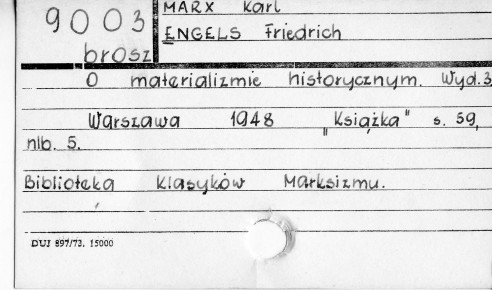 9003
brosz
MARX Karl
ENGELS Friedrich
O materializmie historycznym. Wyd.3
Warszawa 1948 „Książka" s. 59,
nlb. 5.
Biblioteka Klasyków Marksizmu.
DUJ 897/73. 15000